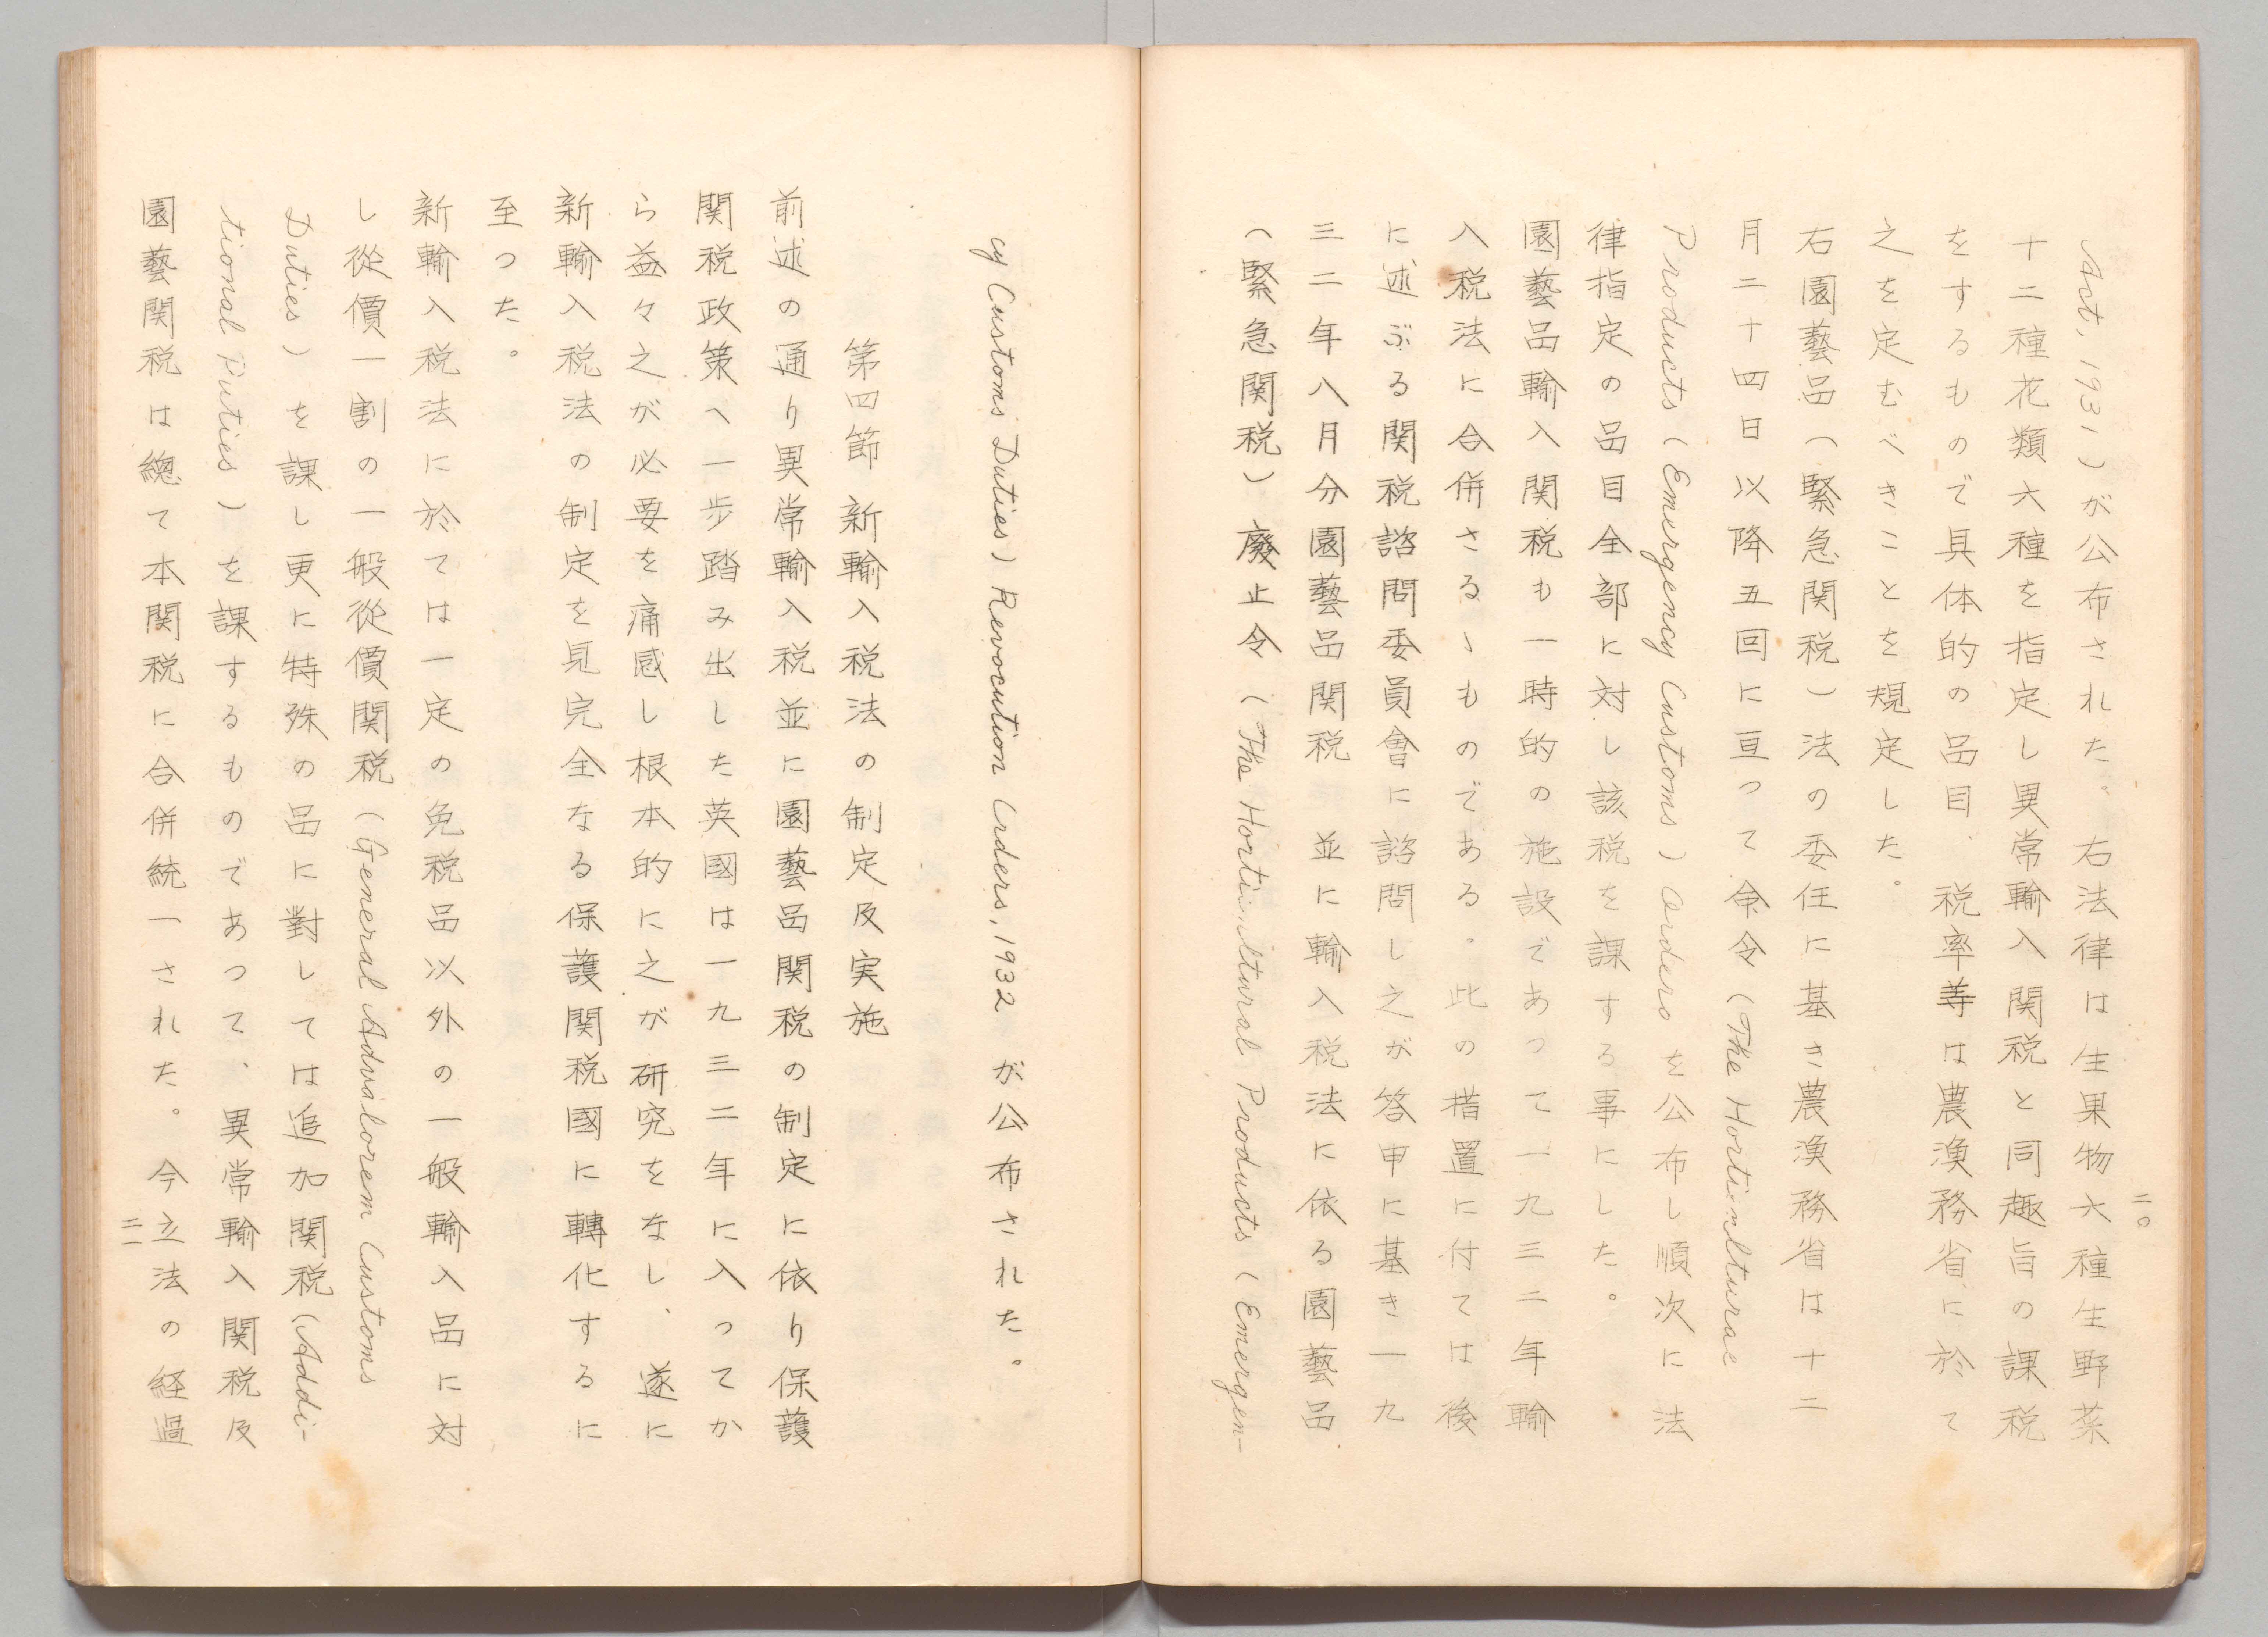 Act, 1931)が公布された。右法律は生果物六種生野菜
十二種花類六種を指定し異常輸入関税と同趣旨の課税
をするもので具体的の品目、税率等は農漁務省に於て
之を定むべきことを規定した。
右園藝品(緊急関税)法の委任に基き農漁務省は十二
月二十四日以降五回に亘って命令(The Horticulturae
Products (Emergency Customs) Orders を公布し順次に法
律指定の品目全部に対し該税を課する事にした。
園藝品輸入関税も一時的の施設であつて一九三二年輸
入税法に合併さるゝものである。此の措置に付ては後
に述ぶる関税諮問委員會に諮問し之が答申に基き一九
三二年八月分園藝品関税 並に輸入税法に依る園藝品
(緊急関税)廢止令(The Horticultural Products (Emergen-
二〇
cy Customs Duties) Revocution Orders, 1932 が公布された。
第四節 新輸入税法の制定及実施
前述の通り異常輸入税並に園藝品関税の制定に依り保護
関税政策へ一歩踏み出した英國は一九三二年に入ってか
ら益々之が必要を痛感し根本的に之が研究をなし、遂に
新輸入税法の制定を見完全なる保護関税國に轉化するに
至つた。
新輸入税法に於ては一定の免税品以外の一般輸入品に対
し從價一割の一般從價関税(General Advalorem Customs
Duties)を課し更に特殊の品に對しては追加関税(Addi-
tional Puties)を課するものであつて、異常輸入関税及
園藝関税は總て本関税に合併統一された。今立法の経過
二一